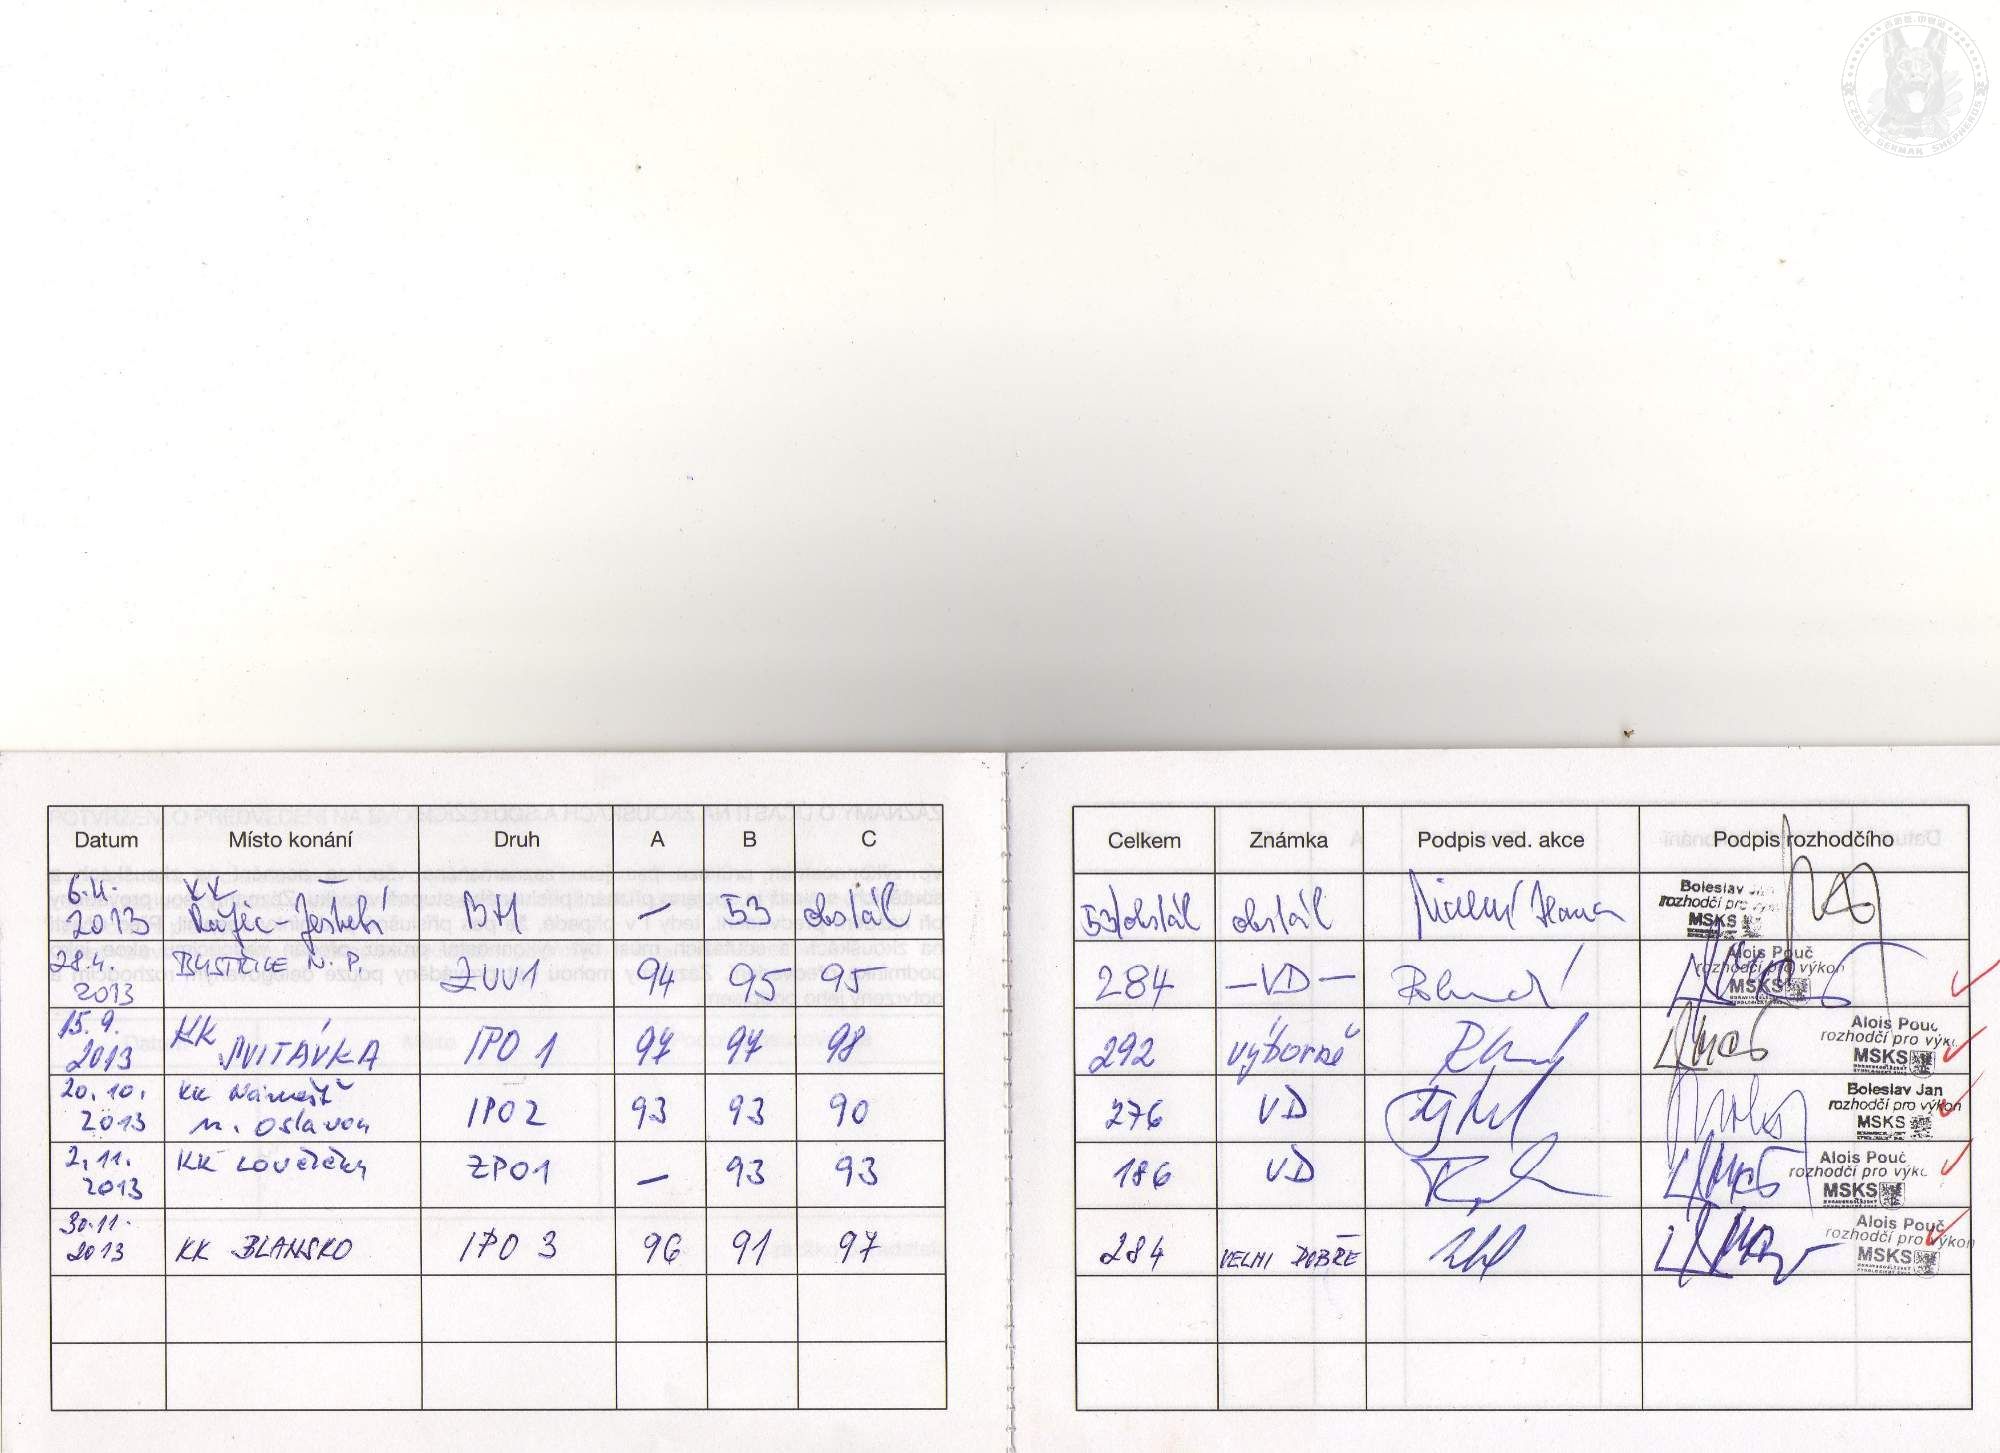 CZECH GERMAN SHEPHERDS
Datum Místo konání Druh A B C
6.4. 2013 KK Rájec-Jestřebí BH — 53 obstál
28.4. 2013 BYSTŘICE N. P. ZVV1 94 95 95
15.9. 2013 KK SVITÁVKA IPO 1 97 97 98
20.10. 2013 KK Náměšť n. Oslavou IPO2 93 93 90
2.11. 2013 KK ZPO1 — 93 93
30.11. 2013 KK BLANSKO IPO 3 96 91 97
Celkem Známka Podpis ved. akce Podpis rozhodčího
53/obstál obstál Boleslav Jan
rozhodčí pro výkon
MSKS
284 —VD— Alois Pouč
rozhodčí pro výkon
MSKS
292 výborně Alois Pouč
rozhodčí pro výk
MSKS
276 VD Boleslav Jan
rozhodčí pro výkon
MSKS
186 VD Alois Pouč
rozhodčí pro výk
MSKS
284 VELMI DOBŘE Alois Pouč
rozhodčí pro výkon
MSKS